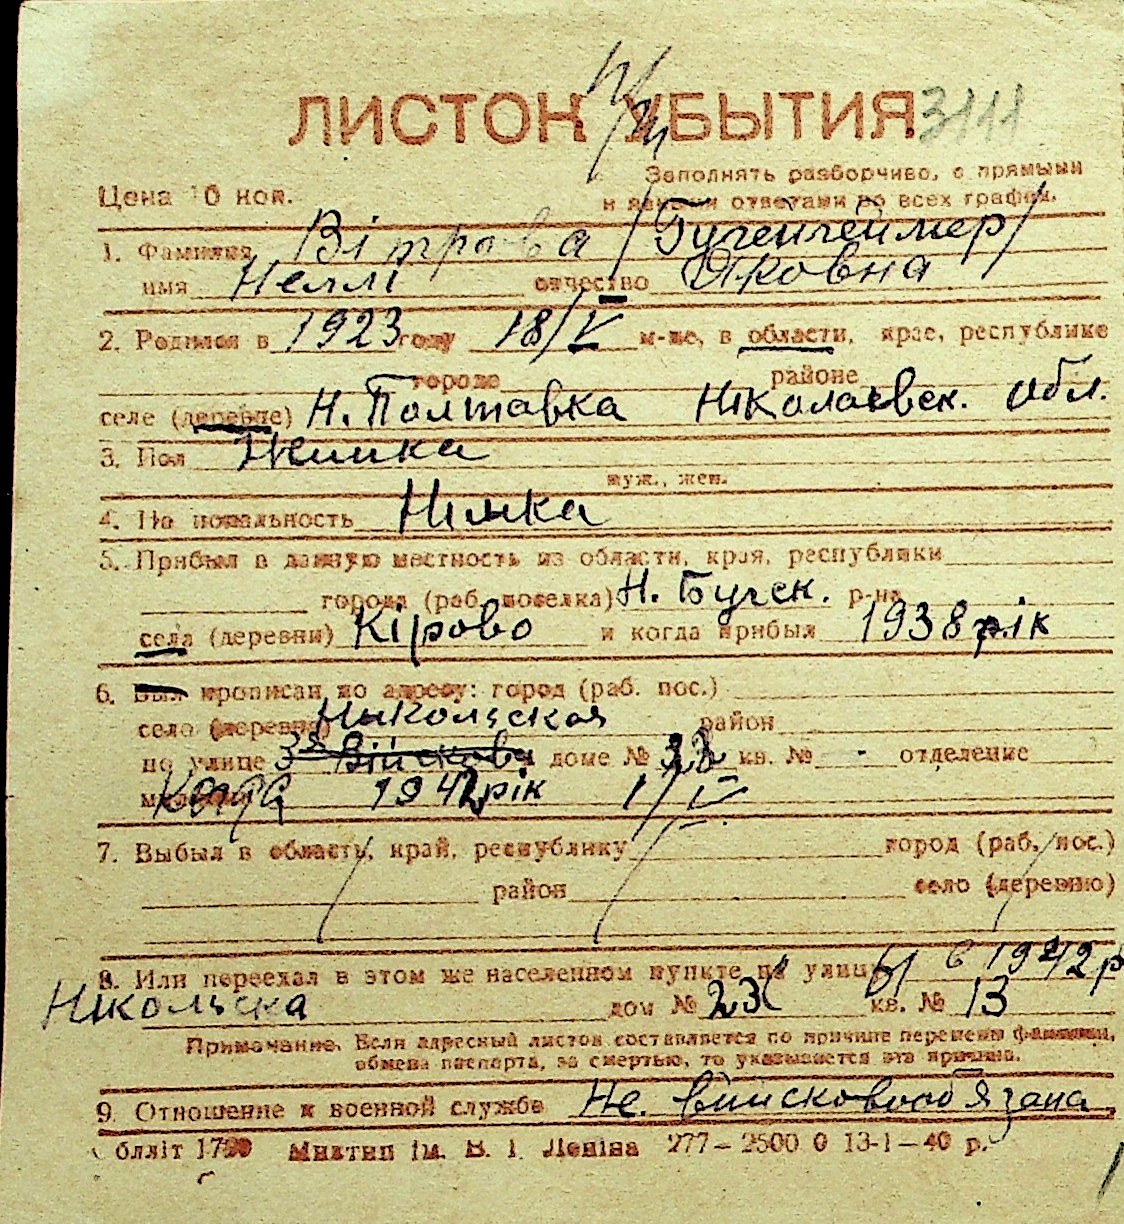 ЛИСТОК УБЫТИЯ 3111
Заполнять разборчиво, с прямыми
Цена 10 коп. и ясными ответами во всех графах.
1. Фамилия Вітрова /Гугенгеймер/
имя Неллі отчество Яковна
2. Родился в 1923 году 18/V м-це, в области, крае, республике
городе районе
селе (деревне) Н. Полтавка Ніколаевск. обл.
3. Пол Жинка
муж., жен.
4. Национальность Нимка
5. Прибыл в данную местность из области, края, республики
города (раб. поселка) Н. Бугск. р-на
села (деревни) Кірово и когда прибыл 1938 рік
6. Был прописан по адресу: город (раб. пос.)
село (деревне) Никольская район
по улице 3я Війскова доме № 32 кв. № - отделение
милиции 1942 рік 1/V
7. Выбыл в область, край, республику город (раб. пос.)
район село (деревню)
8. Или переехал в этом же населенном пункте на улицу 6/ 1942 р
Нікольска дом № 23 кв. № 13
Примечание. Если адресный листок составляется по причине перемены фамилии,
обмена паспорта, за смертью, то указывается эта причина.
9. Отношение к военной службе Не. військовообʼязана
блліт 1790 Миктип ім. В. І. Леніна 277—2500 0 13-1—40 р.